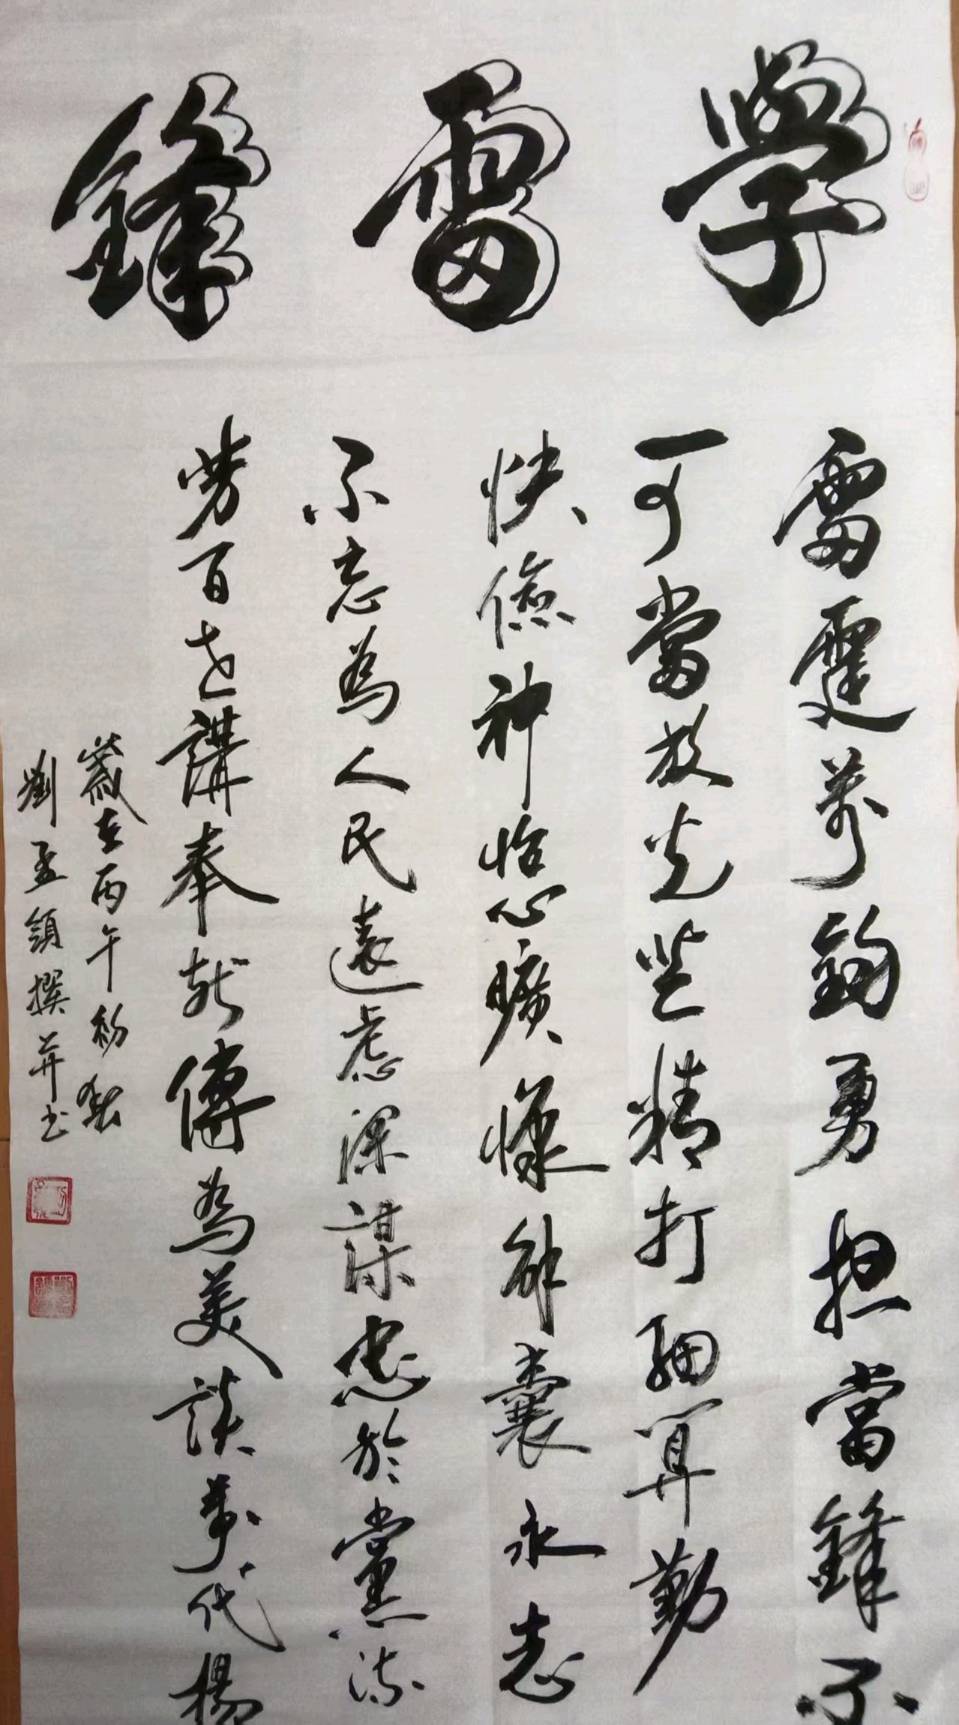 學雷鋒
雷霆萬鈞勇担當鋒不
可當放光芒精打細算勤
快儉神怡心曠慷卸囊永志
不忘為人民遠慮深謀忠於黨流
芳百世講奉献傳為美談萬代楊
歲在丙午初春
劉孟領撰并书